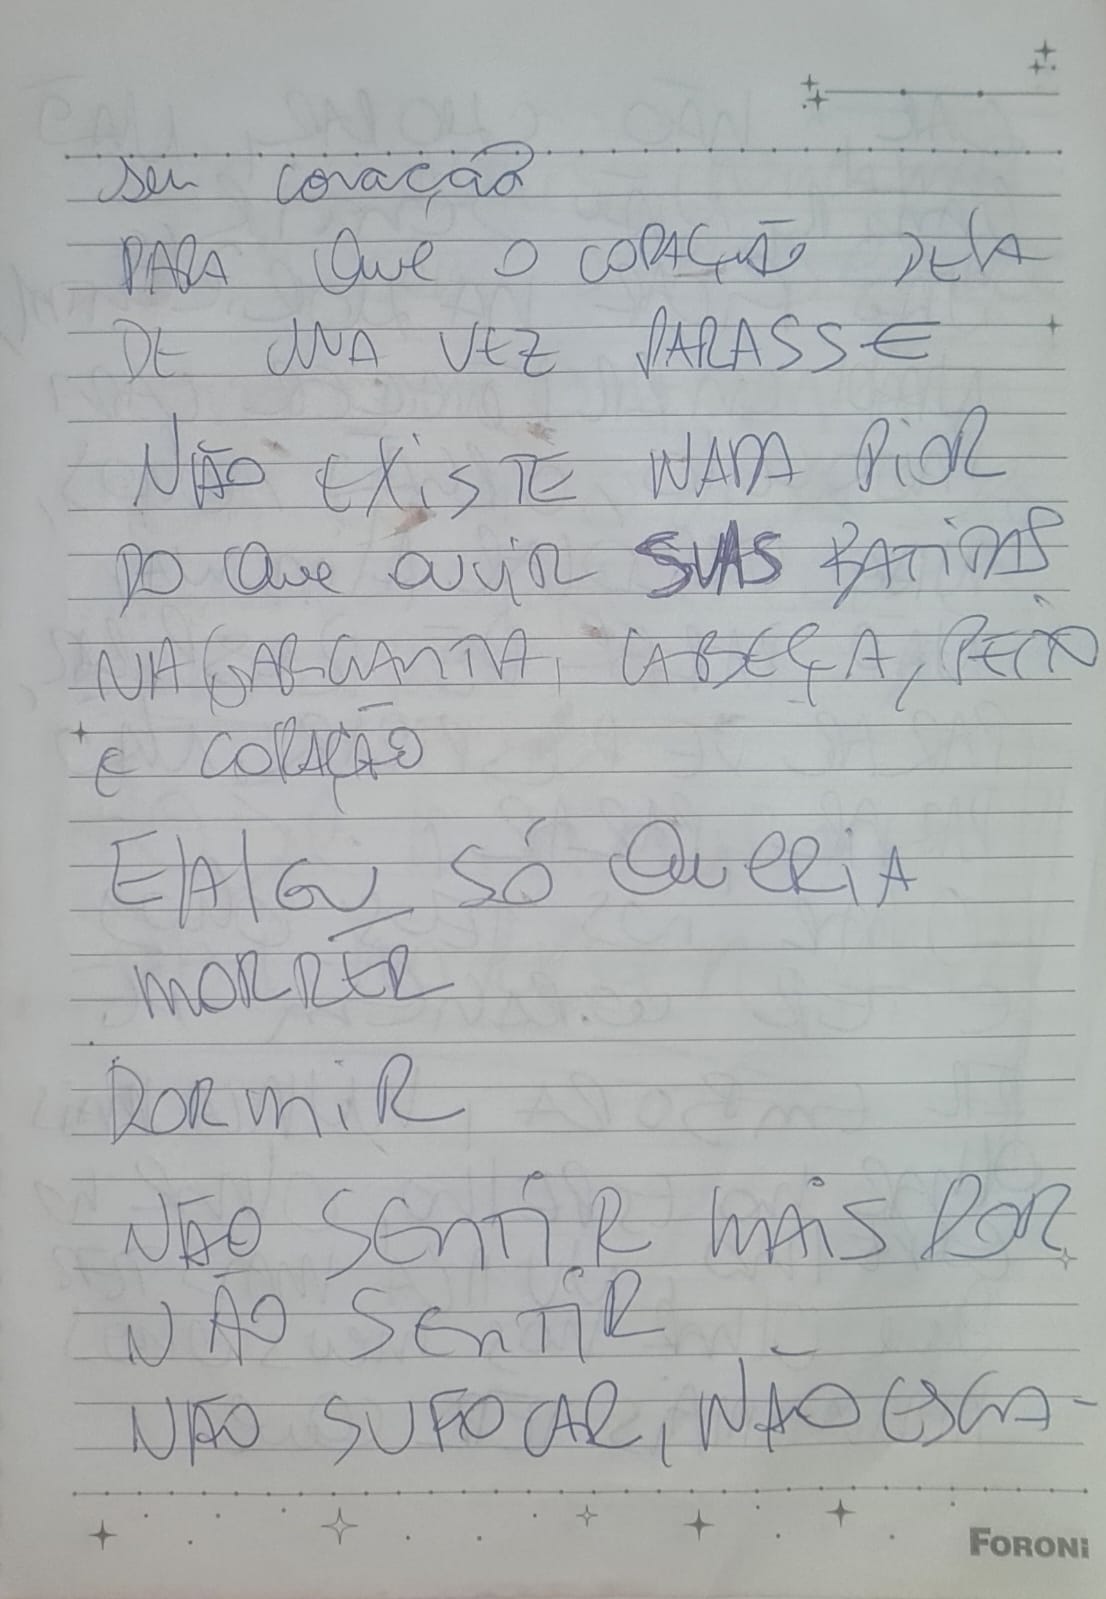 seu coração
PARA QUE O CORAÇÃO DELA
DE UMA VEZ PARASSE
NÃO EXISTE NADA PIOR
DO QUE OUVIR SUAS BATIDAS
NA GARGANTA, CABEÇA, PEITO
E CORAÇÃO
E/A/GU SÓ QUERIA
MORRER
DORMIR
NÃO SENTIR MAIS DOR
NÃO SENTIR
NÃO SUFOCAR, NÃO ESGA-
FORONI